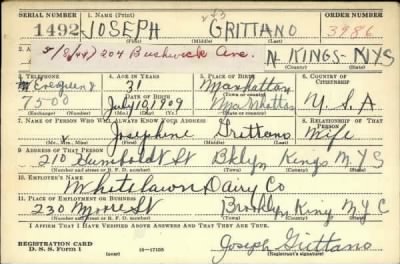 SERIAL NUMBER 1. NAME (Print) ORDER NUMBER
1492 JOSEPH GRITTANO 3986
(First) (Middle) (Last)
2. A
5/8/44) 204 Bushwick Ave. N KINGS-NYS
3. TELEPHONE 4. AGE IN YEARS 5. PLACE OF BIRTH 6. COUNTRY OF CITIZENSHIP
Evergreen 7 31 Manhattan
7500 July 10, 1909 Manhattan U.S.A
7. NAME OF PERSON WHO WILL ALWAYS KNOW YOUR ADDRESS 8. RELATIONSHIP OF THAT PERSON
Josephine Grittano Wife
(Mr., Mrs., Miss) (First) (Middle) (Last)
9. ADDRESS OF THAT PERSON
210 Humboldt St Bklyn Kings N.Y.S
(Number and street or R. F. D. number) (Town) (County) (State)
10. EMPLOYER'S NAME
Whitelawn Dairy Co
11. PLACE OF EMPLOYMENT OR BUSINESS
230 Moore St Brooklyn King N.Y.C
(Number and street or R. F. D. number) (Town) (County) (State)
I AFFIRM THAT I HAVE VERIFIED ABOVE ANSWERS AND THAT THEY ARE TRUE.
REGISTRATION CARD
D. S. S. FORM 1 (over) 16-17105
Joseph Grittano
(Registrant's signature)